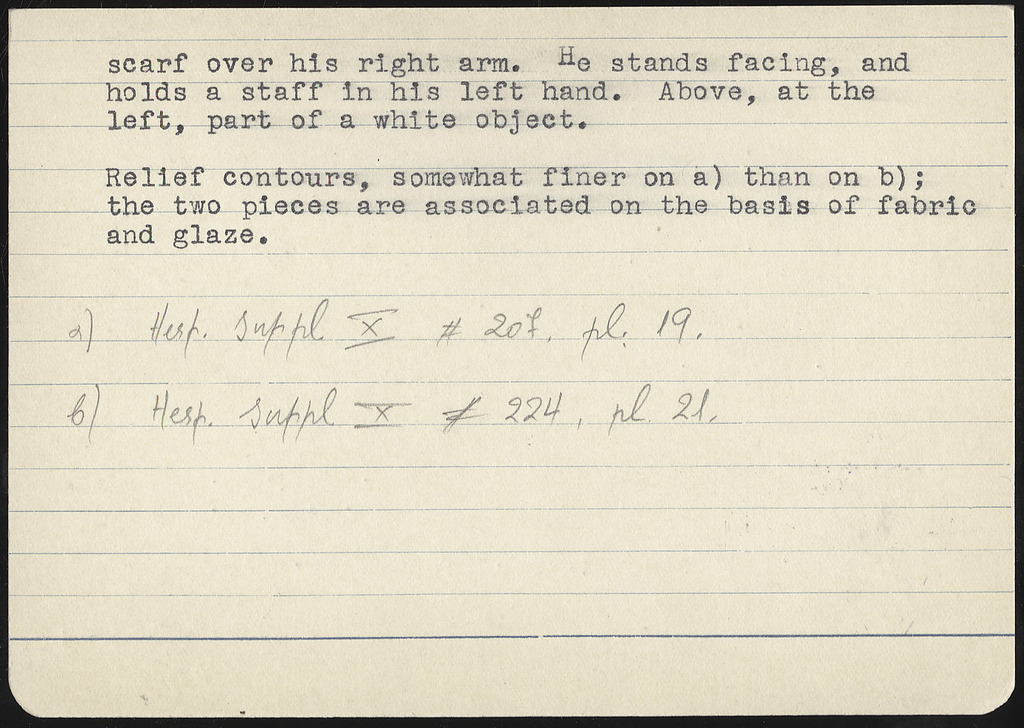 scarf over his right arm. He stands facing, and
holds a staff in his left hand. Above, at the
left, part of a white object.
Relief contours, somewhat finer on a) than on b);
the two pieces are associated on the basis of fabric
and glaze.
a) Hesp. Suppl X # 207, pl. 19.
b) Hesp. Suppl X # 224, pl. 21.